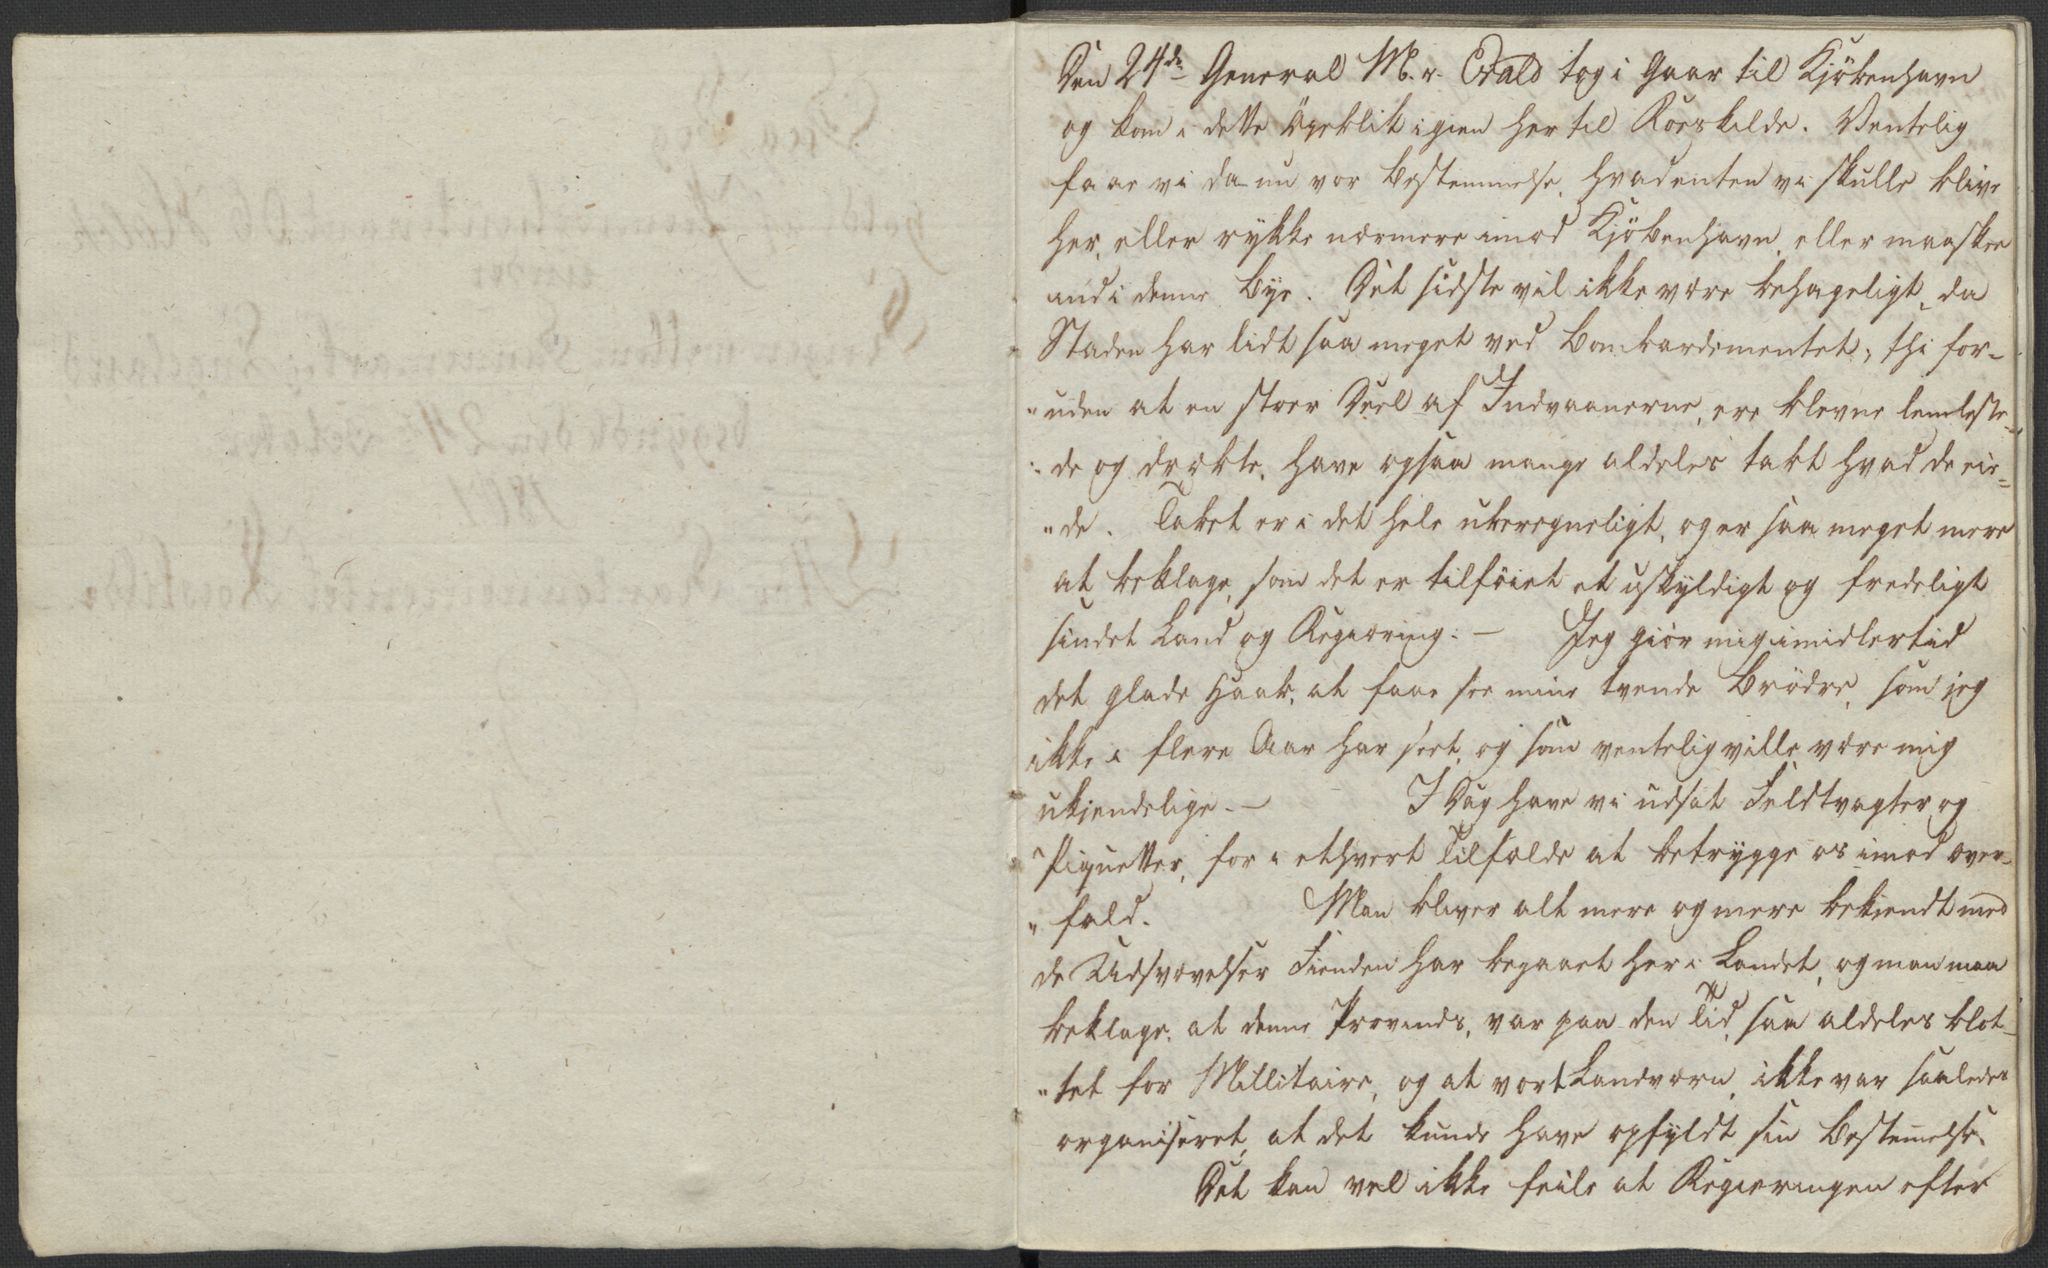 Den 24de General M. v. Evald tog i Gaar til Kjöbenhavn
og kom i dette Öyeblik igien her til Roeskilde. Ventelig
faae vi da nu vor Bestemmelse, hvadenten vi skulle blive
her, eller rykke nærmere imod Kjöbenhavn, eller maaskee
ind i denne Bye. Det sidste vil ikke være behageligt, da
Staden har lidt saa meget ved Bombardementet; thi for-
"uden at en stoer Deel af Indvaanerne, ere blevne lemleste-
"de og dræbte, have ogsaa mange aldeles tabt hvad de eie-
"de. Tabet er i det hele uberegneligt, og er saa meget mere
at beklage, som det er tilföiet et uskyldigt og fredeligt
sindet Land og Regiæring. — Jeg giör mig imidlertid
det glade Haab, at faae see mine tvende Brödre, som jeg
ikke i flere Aar har seet, og som ventelig ville være mig
ukiendelige. — I Dag have vi udsat Feldtvagter og
Piquetter, for i ethvert Tilfælde at betrygge os imod Over-
"fald. Man bliver alt mere og mere bekiendt med
de Udsvævelser Fienden har begaaet her i Landet, og man maa
beklage, at denne Provinds, var paa den Tid, saa aldeles blot-
"tet for Millitaire, og at vort Landværn, ikke var saaledes
organiseret, at det kunde have opfyldt sin Bestemelse.
Det kan vel ikke feile at Regieringen efter